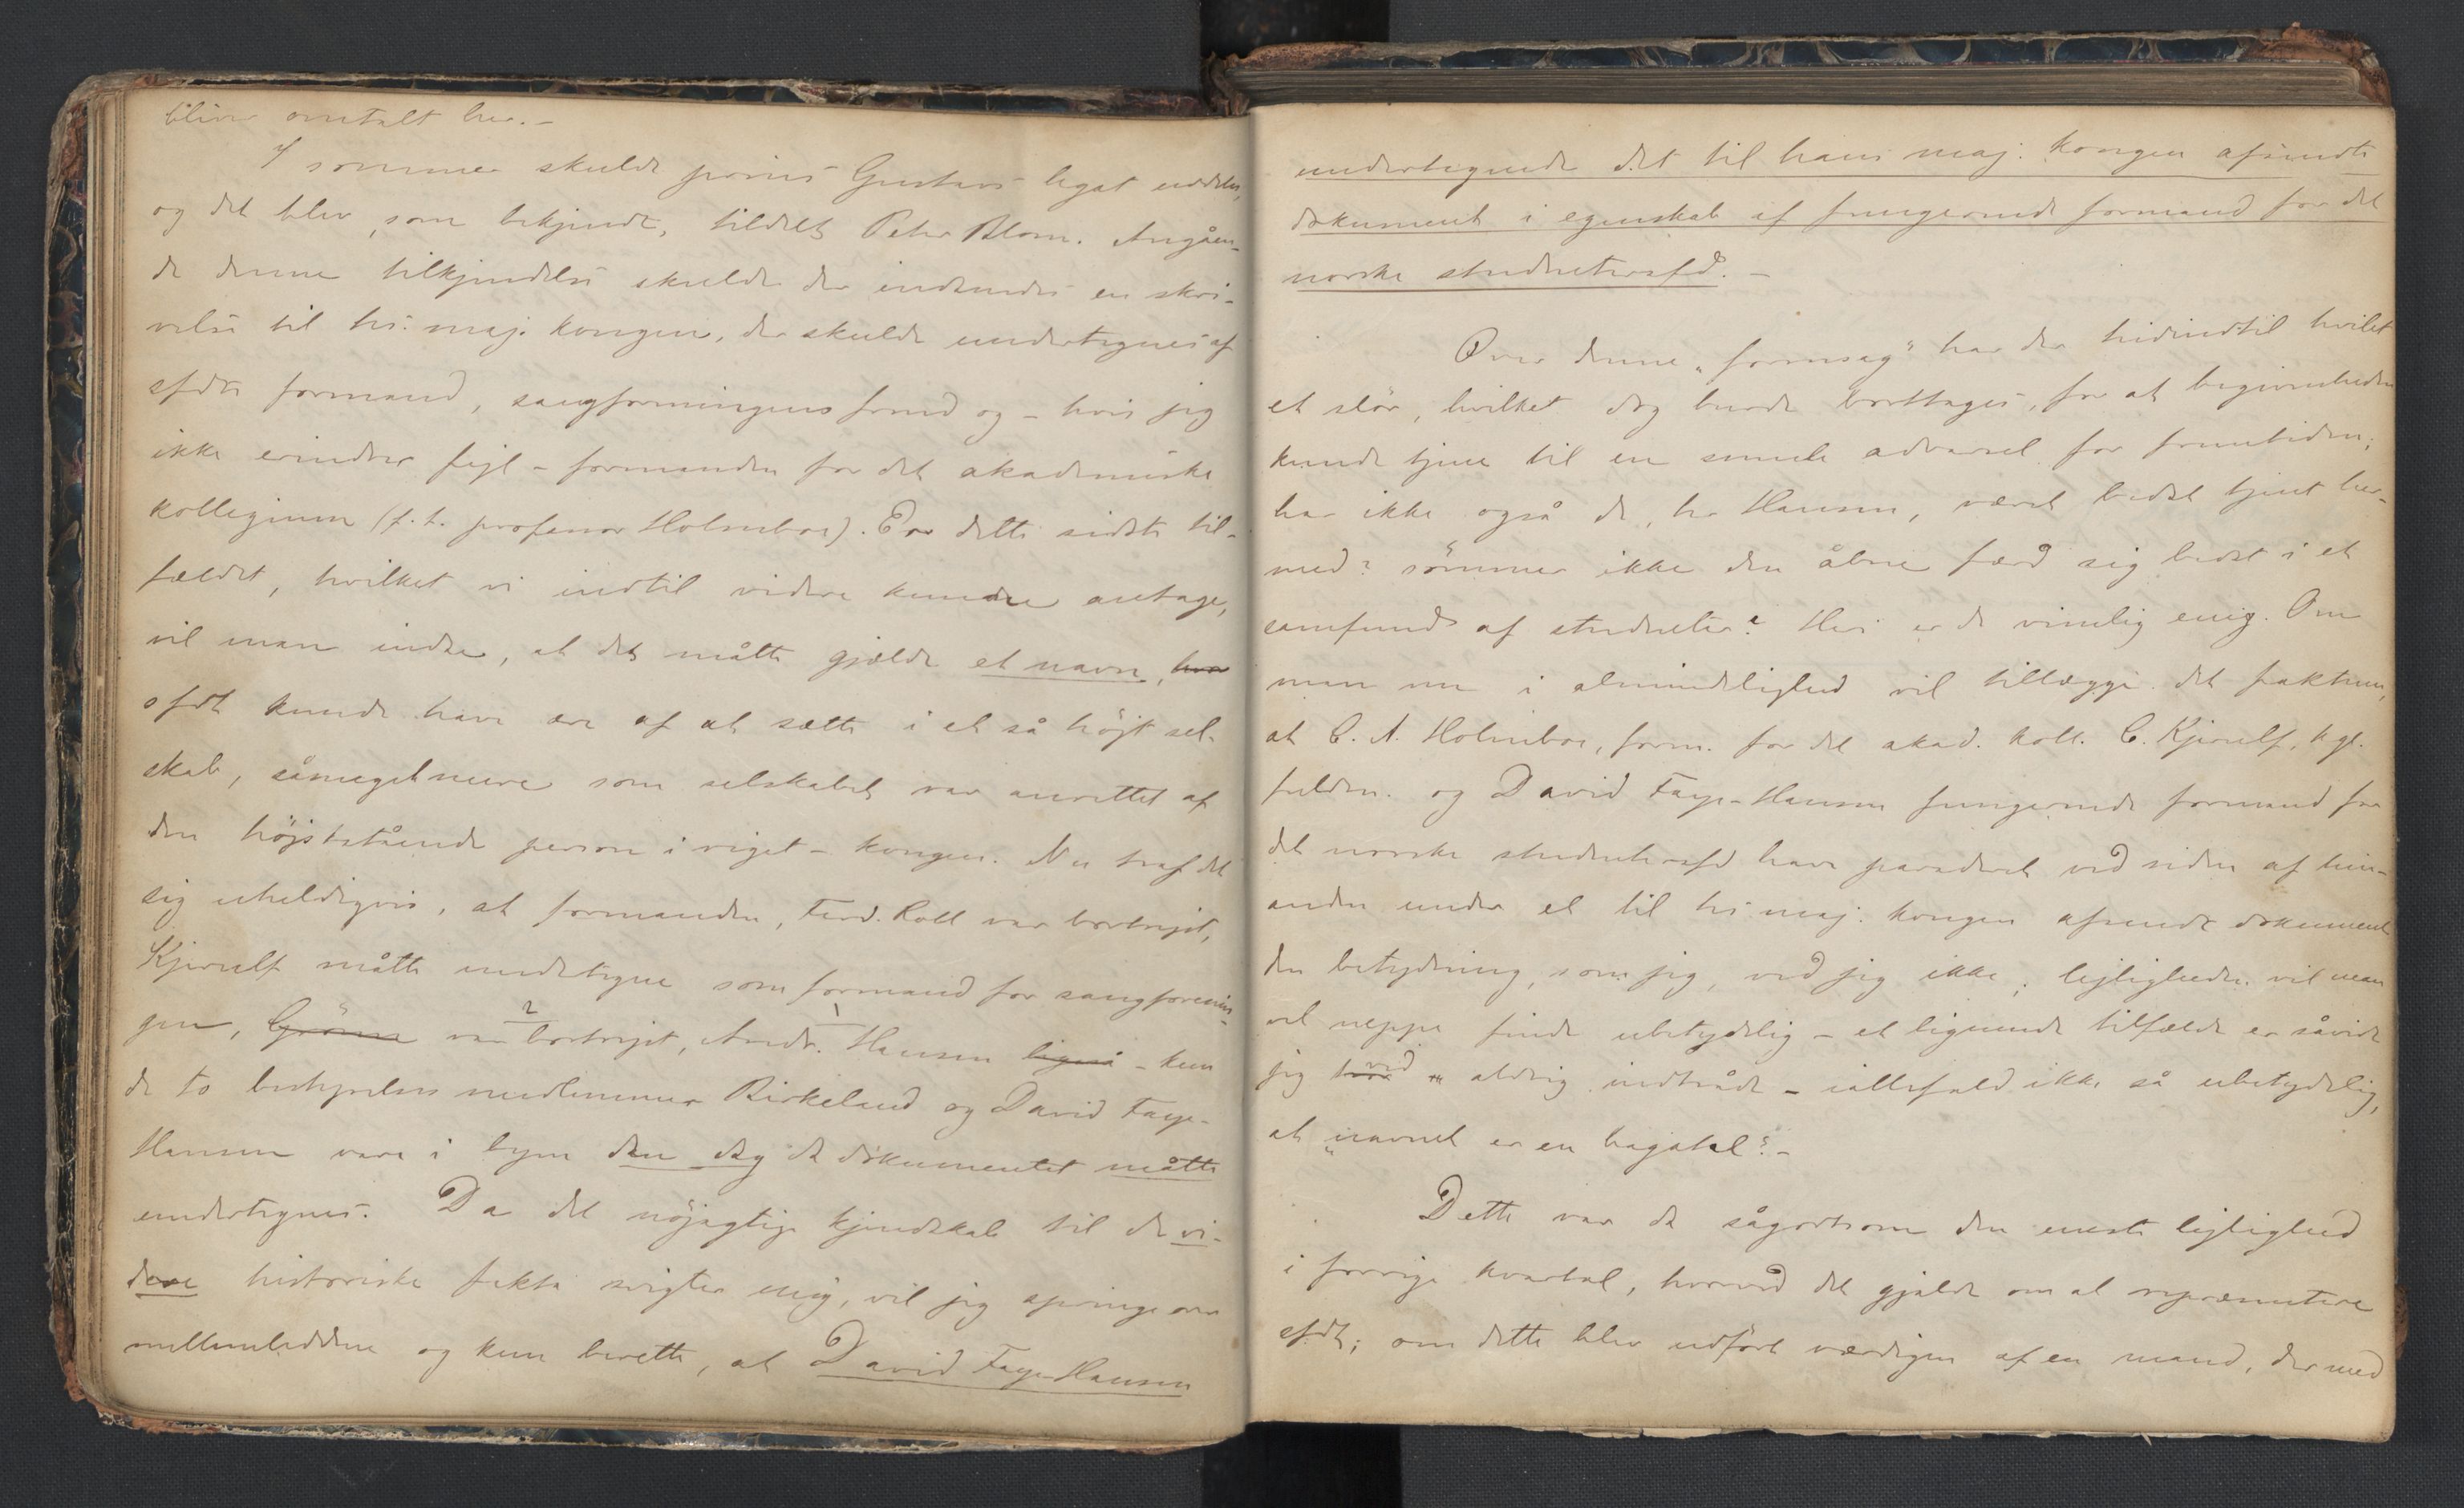 bliver omtalt her. -
I sommer skulde prins Gustavs legat uddeles,
og det blev, som bekjendt, tildelt Peter Blom. Angåen-
de denne tilkjendelse skulde der indsendes en skri-
velse til hs. maj. kongen, der skulde undertegnes af
sfdts formand, sangforeningens frmd og - hvis jeg
ikke erindrer fejl - formanden for det akademiske
kollegium (f. t. professor Holmboe). For dette sidste til-
fældet, hvilket vi indtil videre kunne antage,
vil man indse, at det måtte gjælde et navn, hvor
sfdt kunde have ære af at sætte i et så højt sel-
skab, såmeget mere som selskabet var anrettet af
den højststående person i riget - kongen. Nu traf det
sig uheldigvis, at formanden, Ferd. Roll var bortrejst,
Kjerulf måtte undertegne som formand for sangforenin-
gen, Grønn var 2 bortrejst, Andr. 1 Hansen ligeså - kun
de to bestyrelsesmedlemmer Birkeland og David Faye-
Hansen vare i byen den dag da dokumentet måtte
undertegnes. Da det nøjagtige kjendskab til de vi-
dere historiske fakta svigter mig, vil jeg springe over
mellemleddene og kun berette, at David Faye-Hansen
undertegnede det til hans maj. kongen afsendte
dokument i egenskab af fungerende formand for det
norske studentersfd. -
Over denne "formsag" har der hidindtil hvilet
et slör, hvilket dog burde borttages, for at begivenheden
kunde tjene til en smule advarsel for fremtiden;
har ikke også de, hr Hansen, været bedst tjent her-
med? sömmer ikke den åbne færd sig bedst i et
samfund af studenter? Heri er de vimelig enig. Om
man nu i almindelighed vil tillægge det faktum,
at C. A. Holmboe, form. for det akad. koll. C. Kjerulf, kgl.
fuldm. og David Faye-Hansen fungerende formand for
det norske studentersfd have paraderet ved siden af hin-
anden under et til hs. maj. kongen afsendt dokument
den betydning, som jeg, ved jeg ikke; lejligheden vil man
vel neppe finde ubetydelig - et lignende tilfælde er såvidt
jeg ved aldrig indtrådt - iallefald ikke så ubetydelig,
at "navnet er en bagatel". -
Dette var da sågodtsom den eneste lejlighed
i forrige kvartal, hvorved det gjaldt om at repræsentere
sfdt; om dette blev udført værdigen af en mand, der med